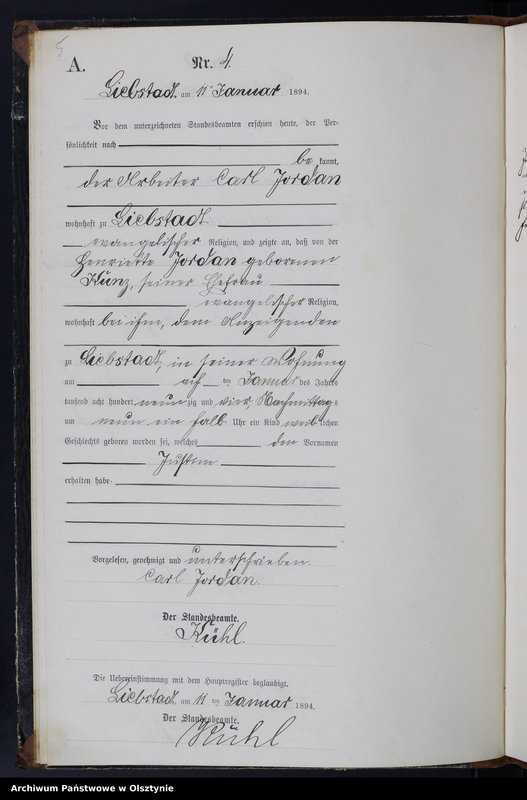 5
A.
Nr. 4.
Liebstadt, am 11ten Januar 1894.
Vor dem unterzeichneten Standesbeamten erschien heute, der Per-
sönlichkeit nach
be kannt,
der Arbeiter Carl Jordan
wohnhaft zu Liebstadt
evangelischer Religion, und zeigte an, daß von der
Henriette Jordan geborenen
Kunz, seiner Ehefrau
evangelischer Religion,
wohnhaft bei ihm, dem Anzeigenden
zu Liebstadt, in seiner Wohnung
am ten Januar des Jahres
tausend acht hundert neun zig und vier, Nachmittags
um neun ein halb Uhr ein Kind weib lichen
Geschlechts geboren worden sei, welches den Vornamen
Justine
erhalten habe.
Vorgelesen, genehmigt und unterschrieben.
Carl Jordan.
Der Standesbeamte.
Kühl.
Die Uebereinstimmung mit dem Hauptregister beglaubigt.
Liebstadt, am 11 ten Januar 1894.
Der Standesbeamte.
Kühl
Archiwum Państwowe w Olsztynie